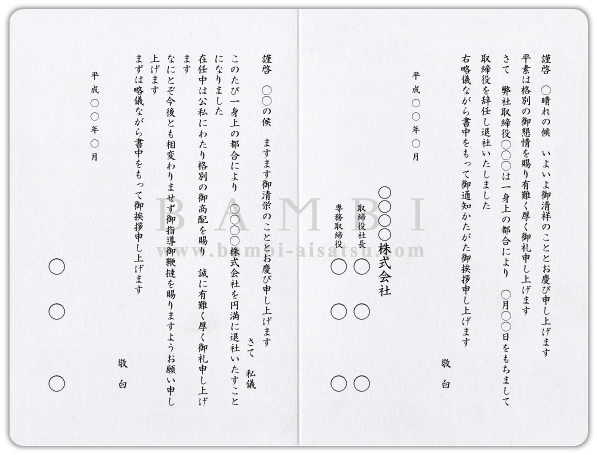 謹啓　〇晴れの候　いよいよ御清祥のこととお慶び申し上げます
平素は格別の御懇情を賜り有難く厚く御礼申し上げます
さて　弊社取締役〇〇〇は一身上の都合により　〇月〇〇日をもちまして
取締役を辞任し退社いたしました
右略儀ながら書中をもって御通知かたがた御挨拶申し上げます
敬白
平成〇〇年〇月
〇〇〇〇株式会社
取締役社長　〇　〇　〇
専務取締役　〇　〇　〇
謹啓　〇〇の候　ますます御清栄のこととお慶び申し上げます
さて　私儀
このたび一身上の都合により　〇〇〇〇株式会社を円満に退社いたすこと
になりました
在任中は公私にわたり格別の御高配を賜り　誠に有難く厚く御礼申し上げ
ます
なにとぞ今後とも相変わりませず御指導御鞭撻を賜りますようお願い申し
上げます
まずは略儀ながら書中をもって御挨拶申し上げます
敬白
平成〇〇年〇月
〇　〇　〇
BAMBI
www.bambi-aisatsu.com